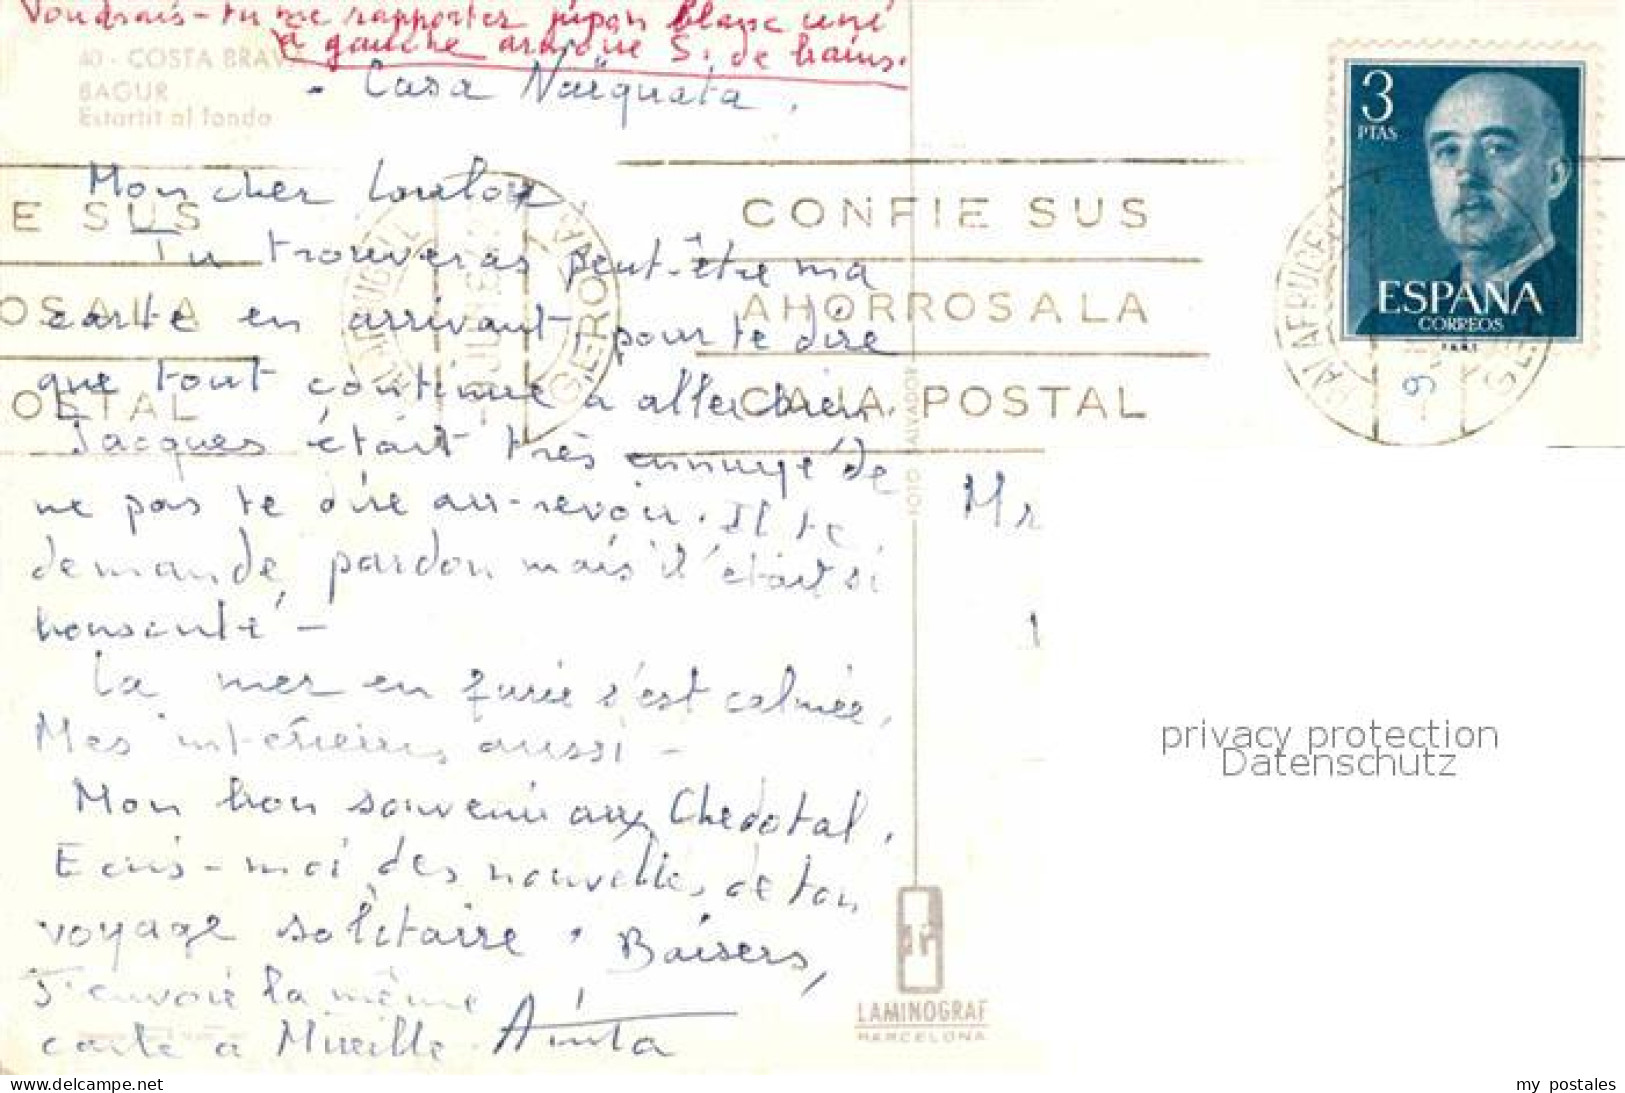 Voudrais-tu me rapporter jupon blanc uni
à gauche armoire S. de bains.
40 - COSTA BRAV
BAGUR
Estartit al fondo
- Casa
Mon cher Loulou
Tu trouveras peut-être ma
carte en arrivant, pour te dire
que tout continue à aller bien.
Jacques était très ennuyé de
ne pas te dire au-revoir. Il te
demande pardon mais il était si
La mer en furie s'est calmée,
Mes intérieurs aussi -
Mon bon souvenir aux Chedotal,
Ecris-moi des nouvelles de ton
voyage solitaire. Baisers,
J'envoie la même
carte à Mireille. Anita
E SUS
OSALA
OSTAL
PALAFRUGELL
GERONA
CONFIE SUS
AHORROS A LA
CAJA POSTAL
3
PTAS
ESPAÑA
CORREOS
F.N.M.T.
9
FOTO SALVADOR
Mr
LAMINOGRAF
BARCELONA
privacy protection
Datenschutz
www.delcampe.net
my_postales